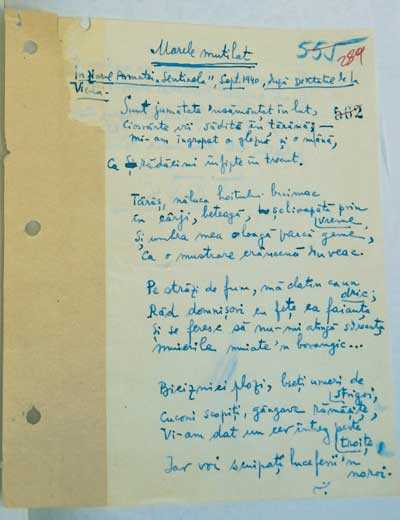 Marele mutilat
555
289
În Ziarul Armatei „Sentinela”, Sept. 1940, după Dictatul de la
Viena.
502
Sunt jumătate însămânțat în lut,
Ciosvârte vii sădită în țărână;
Mi-am îngropat o gleznă și o mână,
Ca rădăcini înfipte în trecut.
Târăș, năluca hoitului buimac
cu cârji, beteagă, șclioapătă prin
vreme,
Și umbra mea oloagă parcă geme,
Ca o mustrare crâncenă din veac.
Pe străzi de fum, mă clatin ca un
dric;
Râd domnișori cu fețe ca faianța
Și se feresc să nu-mi atingă
muierile muiate 'n borangic...
plozi, bieți umeri de
strigoi,
Cuconi scopiți, gângave rămășițe,
Vi-am dat un cer întreg peste
troițe
Iar voi scuipați luceferii 'n
noroi.